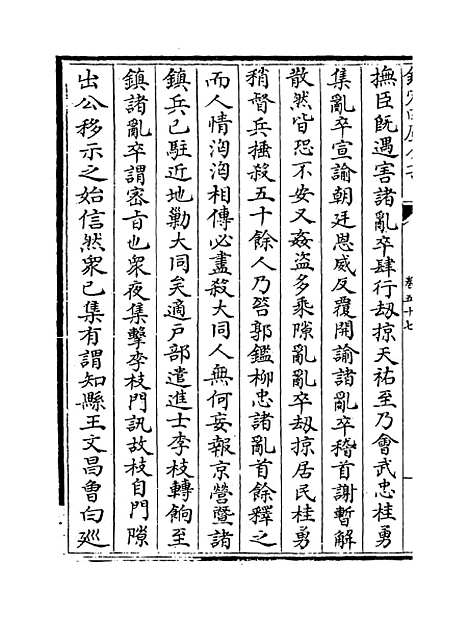 欽定四庫全書
卷五十七
撫臣既遇害諸亂卒肆行刼掠天祐至乃會武忠桂勇
集亂卒宣諭朝廷恩威反覆開諭諸亂卒稽首謝暫解
散然皆恐不安又姦盗多乗隙亂亂卒刼掠居民桂勇
稍督兵捶殺五十餘人乃笞郭鑑柳忠諸亂首餘釋之
而人情洶洶相傳必盡殺大同人無何妄報京營暨諸
鎮兵已駐近地勦大同矣適户部遣進士李枝轉餉至
鎮諸亂卒謂宻㫖也衆夜集擊李枝門訊故枝自門隙
出公移示之始信然衆已集有謂知縣王文昌曾白廵